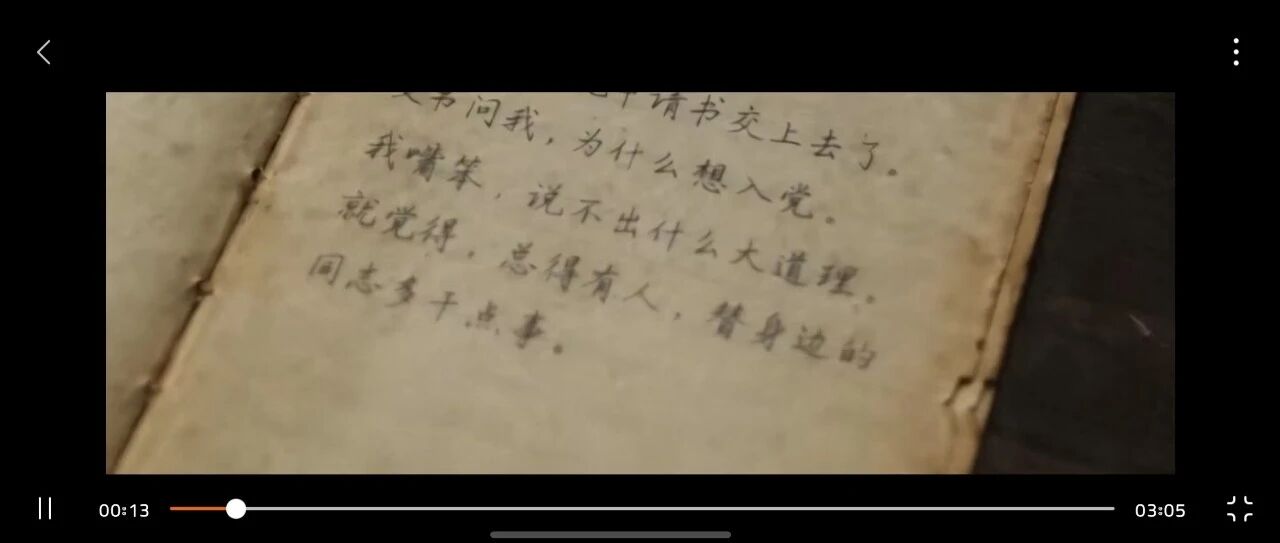 申请书交上去了。
问我，为什么想入党。
我嘴笨，说不出什么大道理。
就觉得，总得有人，替身边的
同志多干点事。
00:13
03:05